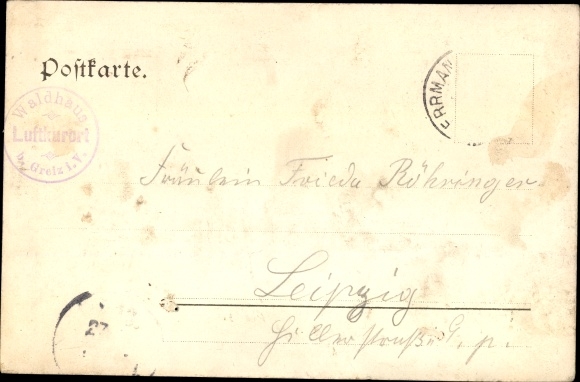 Postkarte.
Waldhaus
Luftkurort
b. Greiz i. V.
ERRMAN
Fräulein Frieda Röhringer
Leipzig
Hillerstraße 9, p.
27